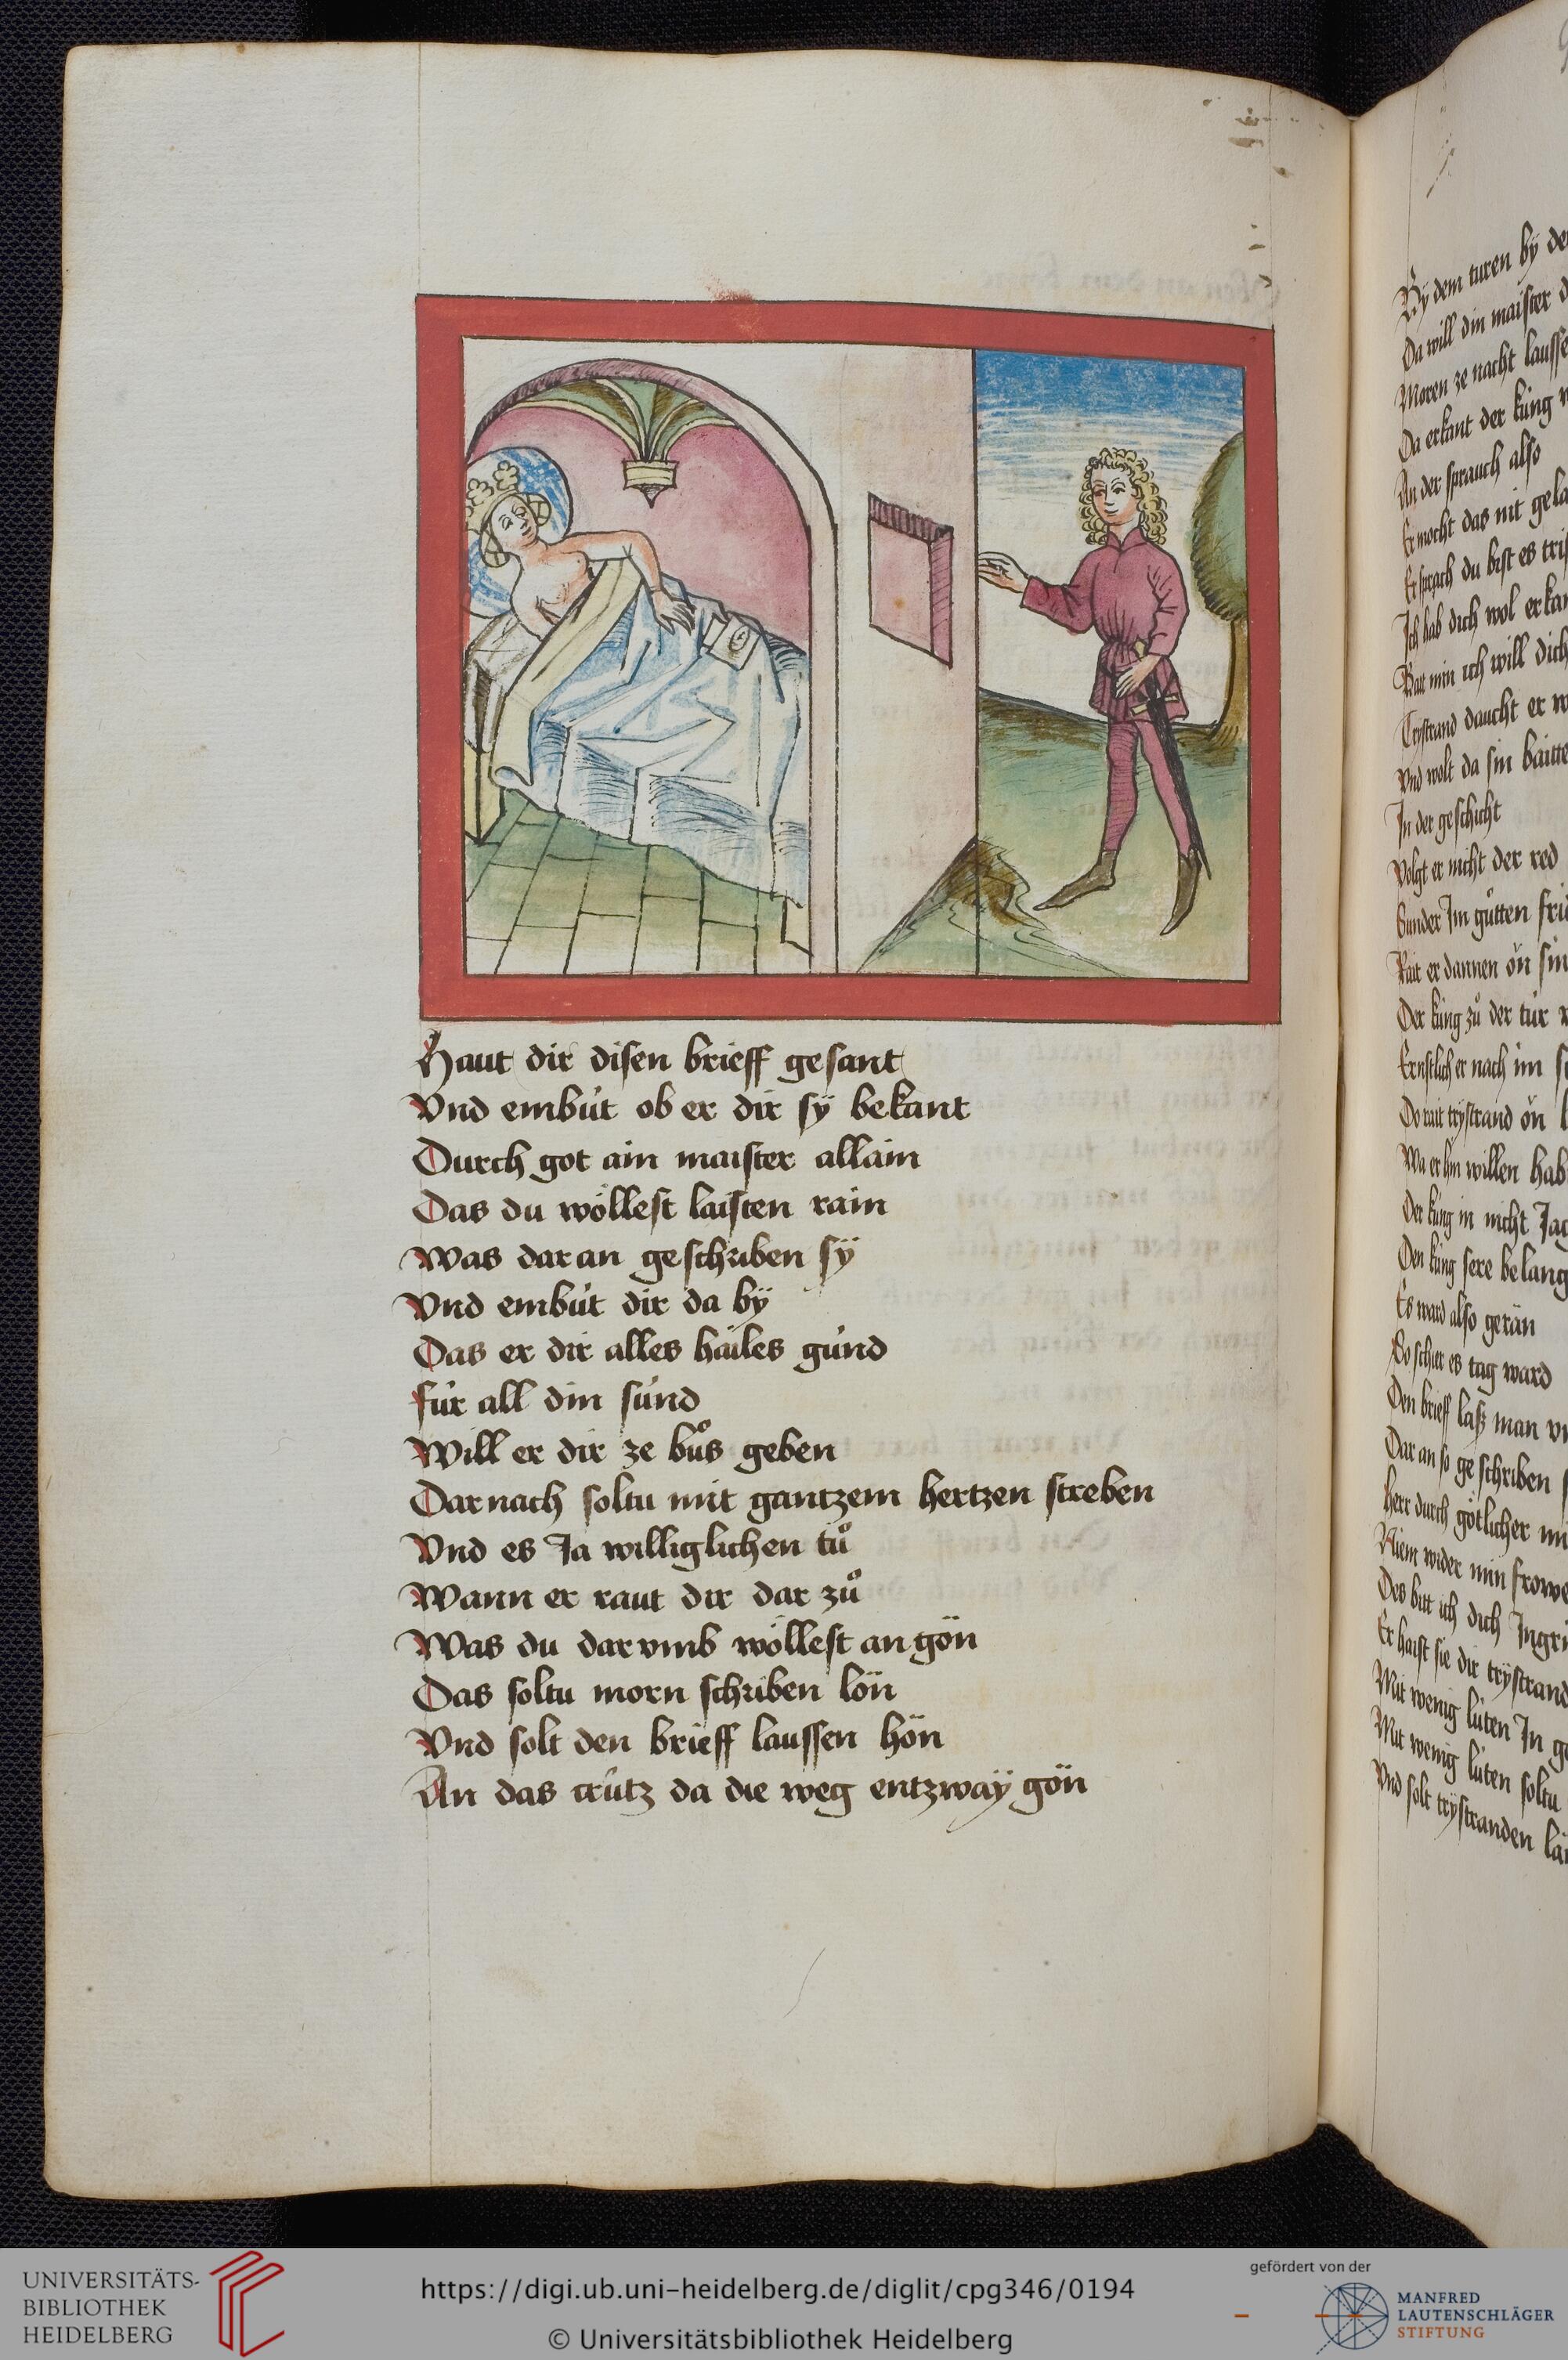 Haut dir disen brieff gesant
Vnd embút ob er dir sÿ bekant
Durch got ain maister allain
Das du wöllest laisten rain
Was dar an geschriben sÿ
Vnd embút dir da bÿ
Das er dir alles hailes gúnd
fúr all din súnd
Will er dir ze bůs geben
Dar nach soltu mit gantzem hertzen streben
Vnd es Ja williglichen tů
Wann er raut dir dar zů
Was du dar vmb wöllest an gön
Das soltu morn schriben lön
Vnd solt den brieff laussen hön
An das crútz da die weg entzwaÿ gön
Bÿ dem turen bÿ
Da will din maister
Moren ze nacht
Da erkant der kúng
An der sprauch also
Er mocht das nit
Er sprach du bist es
Jch hab dich wol
min ich will dich
Trÿstrand daucht er
Vnd wolt da sin
Jn der geschicht
Volgt er nicht der red
Sunder Jm gůtten
Rait er dannen ön
Der kúng zů der túr
Ernstlich er nach im
Do rait trÿstrand ön
Wa er hin willen
Der kúng in nicht
Den kúng sere
Es ward also getän
So schier es tag ward
Den brieff laß man
Dar an so geschriben
Herr durch götlicher
Niem wider min
Des bitt ich dich
Er haist sie dir
Mit wenig lúten Jn
Mit wenig lúten soltu
Vnd solt trÿstranden
UNIVERSITÄTS-
BIBLIOTHEK
HEIDELBERG
https://digi.ub.uni-heidelberg.de/diglit/cpg346/0194
© Universitätsbibliothek Heidelberg
gefördert von der
MANFRED
LAUTENSCHLÄGER
STIFTUNG